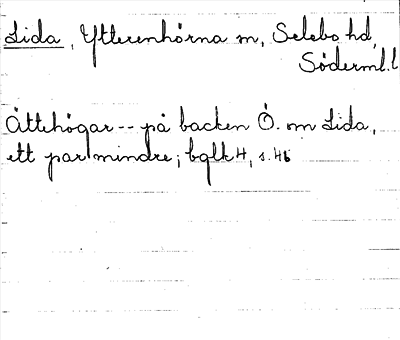 Lida, Ytterenhörna sn, Selebo hd,
Söderml. l
Ättehögar -- på backen Ö. om Lida,
ett par mindre; bglk 4, s. 46